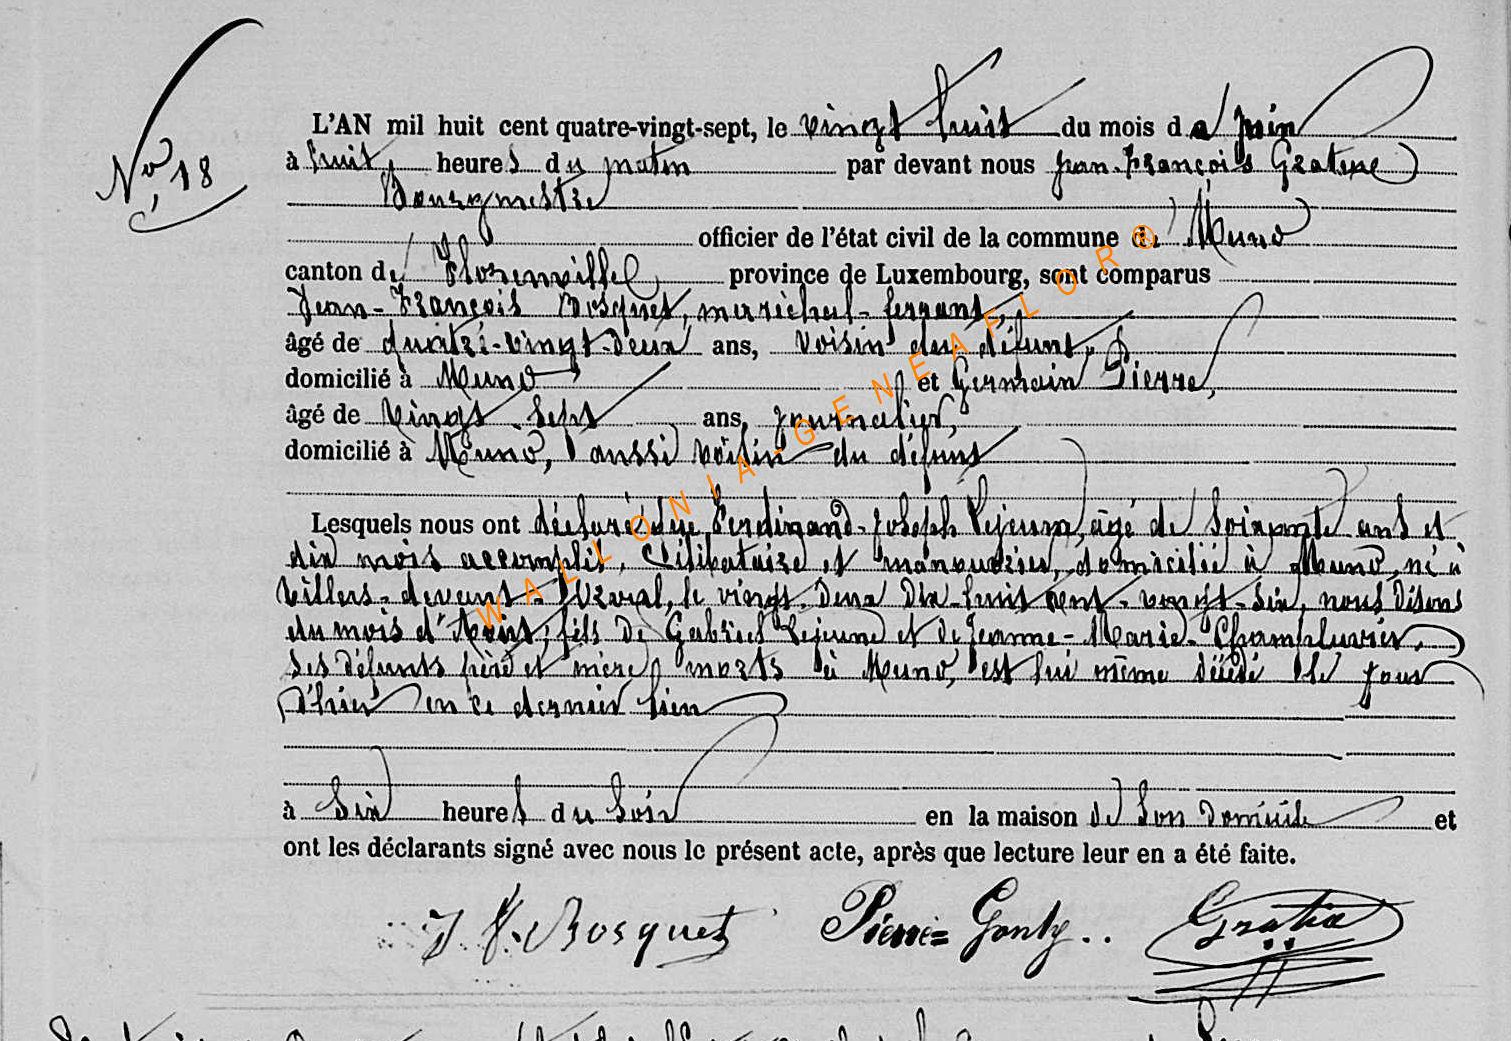 No 18
L'AN mil huit cent quatre-vingt-sept, le vingt huit du mois de Juin
à huit heures du matin par devant nous Jean-François Gratia
Bourgmestre
officier de l'état civil de la commune de Muno
canton de Florenville province de Luxembourg, sont comparus
Jean-François Bosquet, maréchal-ferrant,
âgé de quatre-vingt-deux ans, voisin du défunt,
domicilié à Muno et Germain Pierre,
âgé de vingt-sept ans, journalier,
domicilié à Muno, aussi voisin du défunt
Lesquels nous ont déclaré que Ferdinand-Joseph Lejeune, âgé de soixante ans et
dix mois accomplis, Célibataire et manouvrier, domicilié à Muno, né à
Villers-devant-Orval, le vingt-deux dix-huit cent-vingt-six, nous disons
du mois d'Août, fils de Gabriel Lejeune et de Jeanne-Marie-
ses défunts père et mère morts à Muno, est lui même décédé le jour
d'hier en ce dernier lieu
à six heures du soir en la maison de son domicile et
ont les déclarants signé avec nous le présent acte, après que lecture leur en a été faite.
J F. Bosquet Pierre= Gratia
WALLONIA-GENEAFLOR®